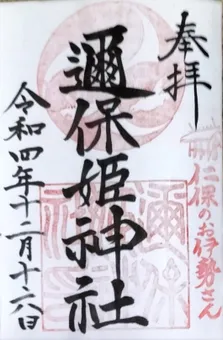 奉拝
仁保のお伊勢さん
邇保姫神社
令和四年十二月十六日